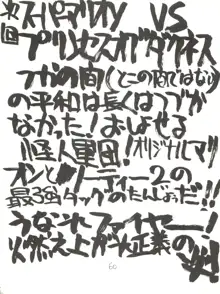 ※スーパーマリオン VS
回プリンセスオブダクネス
つかの間(とこの間ではない)
の平和は長くはつづか
なかった!おしよせる
怪人軍団!オリジナルマリ
オンとリーティー2の
最強タッグのたんじょうだ!!
うなれファイヤー!
燃え上がれ正義の
60